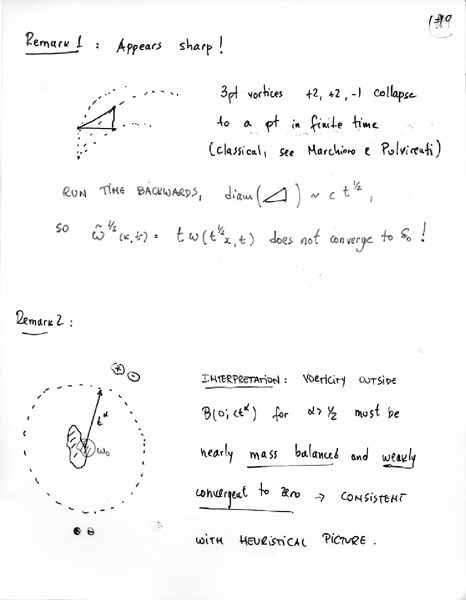 Remark 1 : Appears sharp !
3pt vortices +2, +2, -1 collapse
to a pt in finite time
(classical, see Marchioro e Pulvirenti)
RUN TIME BACKWARDS, diam(◿) ~ c t^{1/2},
so ω̃^{1/2}(x,t) = t ω(t^{1/2}x,t) does not converge to δ₀ !
Remark 2 :
+ −
t^α
ω₀
INTERPRETATION : VORTICITY OUTSIDE
B(0; ct^α) for α > 1/2 must be
nearly mass balanced and weakly
convergent to zero → CONSISTENT
WITH HEURISTICAL PICTURE.